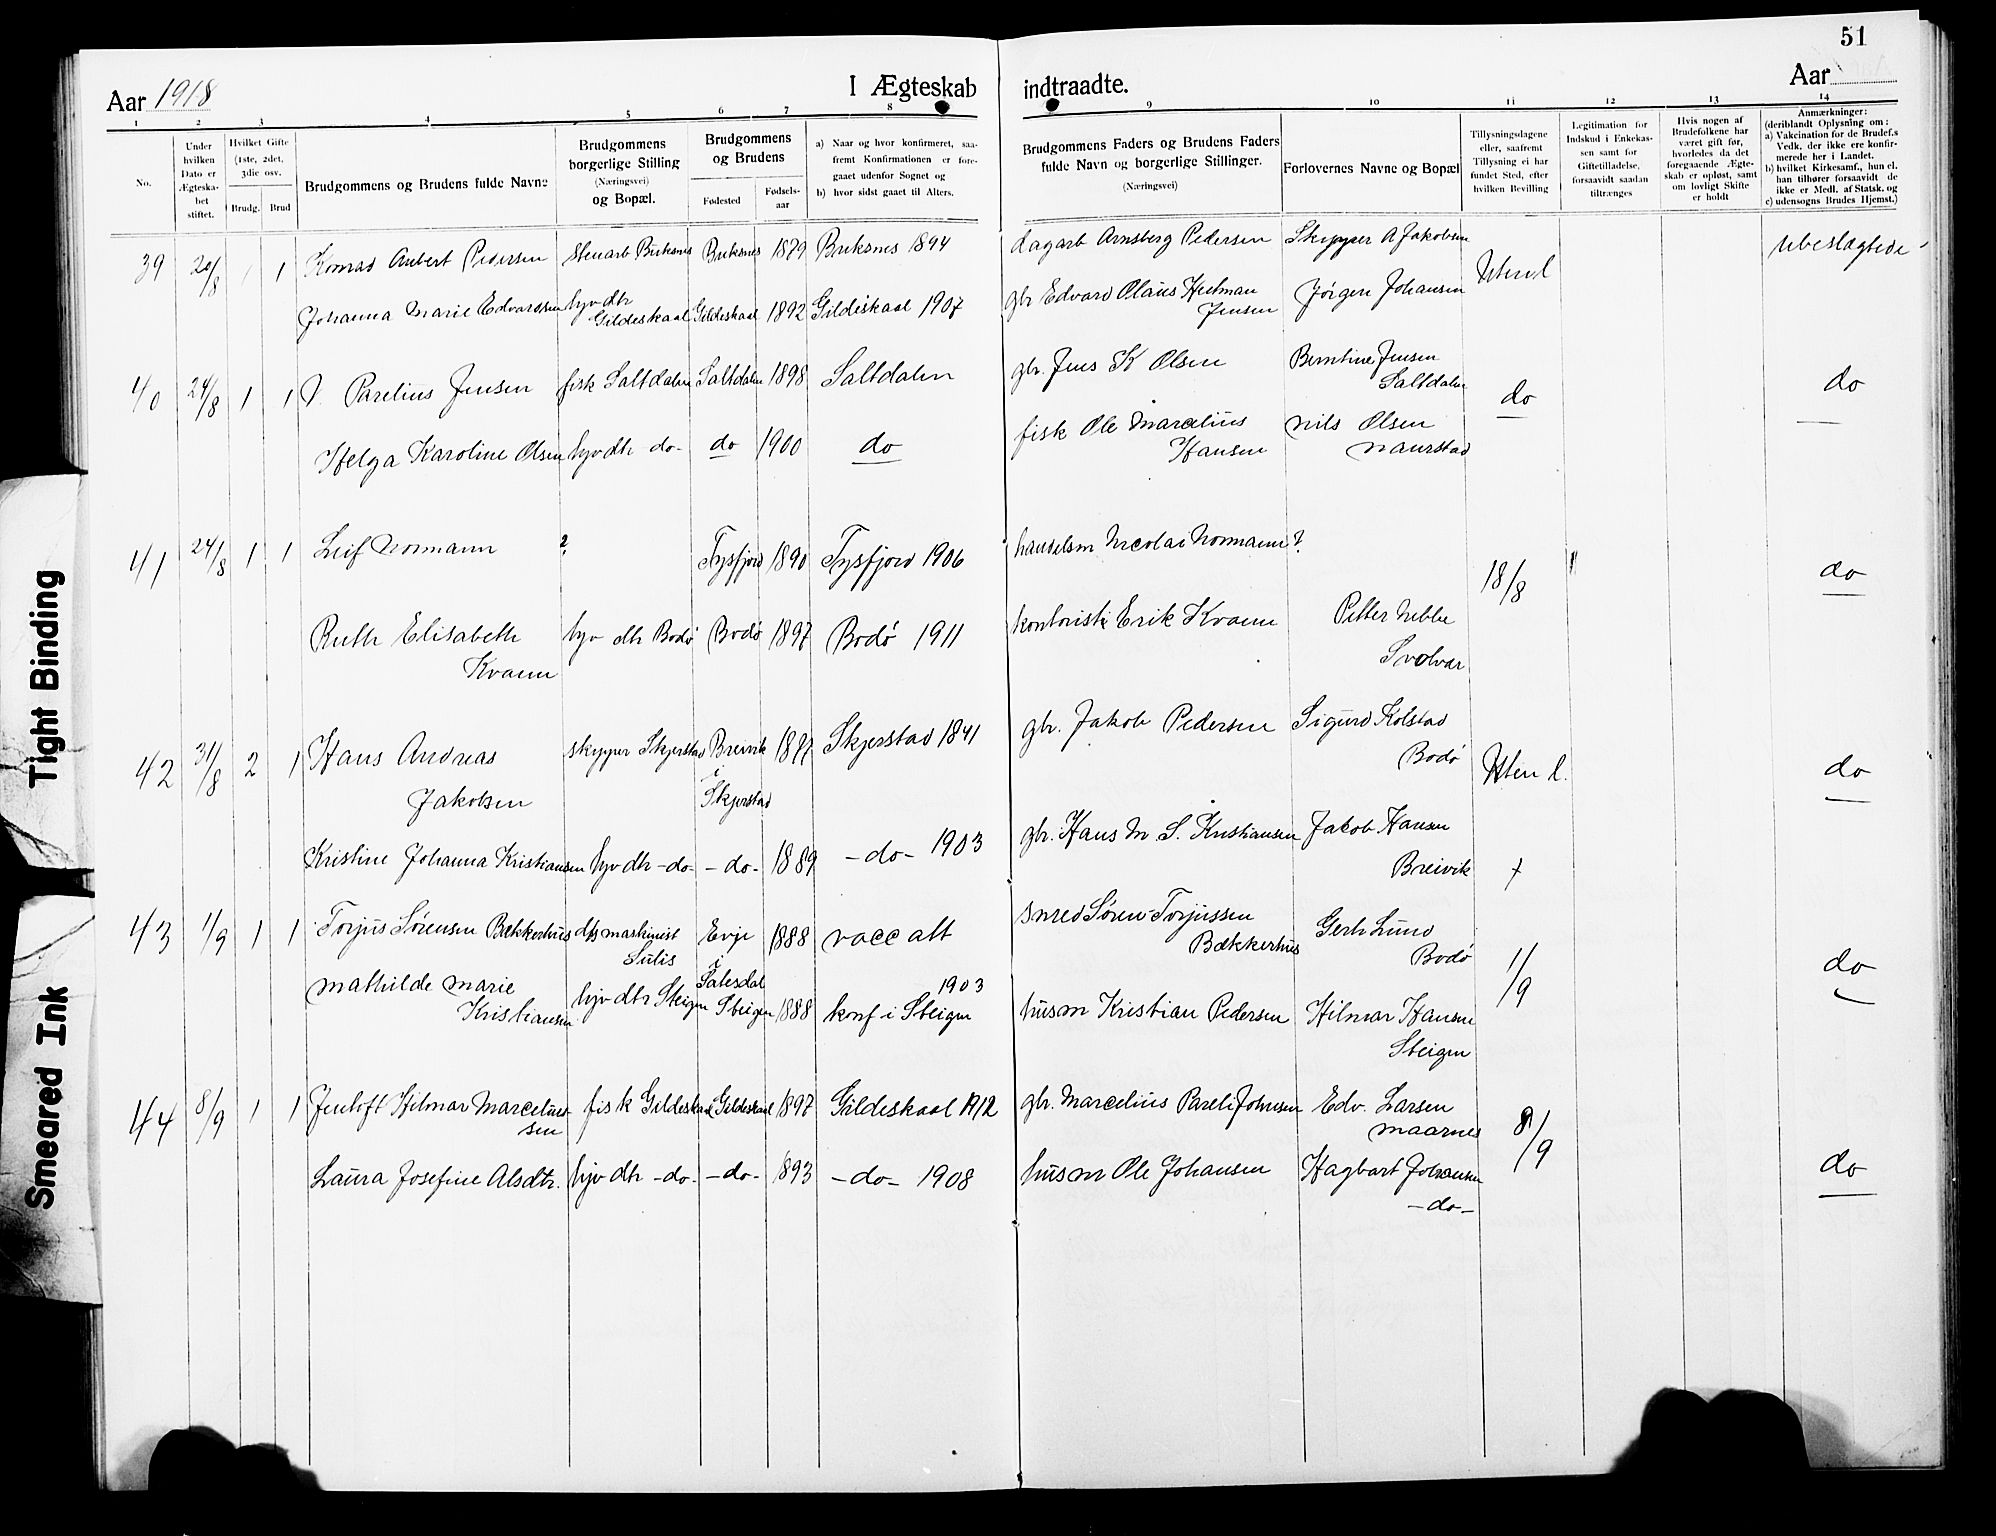 51
Aar 1918
I Ægteskab
indtraadte.
Aar
1 2 3 4 5 6 7 8 9 10 11 12 13 14
No.
Under hvilken Dato er Ægteskabet stiftet.
Hvilket Gifte (1ste, 2det, 3die osv.
Brudg. Brud
Brudgommens og Brudens fulde Navne
Brudgommens borgerlige Stilling (Næringsvei) og Bopæl.
Brudgommens og Brudens
Fødested
Fødselsaar
a) Naar og hvor konfirmeret, saafremt Konfirmationen er foregaaet udenfor Sognet og
b) hvor sidst gaaet til Alters.
Brudgommens Faders og Brudens Faders fulde Navn og borgerlige Stillinger.
(Næringsvei)
Forlovernes Navne og Bopæl
Tillysningsdagene eller, saafremt Tillysning ei har fundet Sted, efter hvilken Bevilling
Legitimation for Indskud i Enkekassen samt for Giftetilladelse, forsaavidt saadan tiltrænges
Hvis nogen af Brudefolkene har været gift før, hvorledes da det foregaaende Ægteskab er opløst, samt om lovligt Skifte er holdt
Anmærkninger:
(deriblandt Oplysning om:
a) Vakcination for de Brudef.s Vedk. der ikke ere konfirmerede her i Landet.
b) hvilket Kirkesamf., hun el. han tilhører forsaavidt de ikke er Medl. af Statsk. og
c) udensogns Brudes Hjemst.)
39 20/8 1 1 Konrad Anbert Pedersen stenarb Buksnes Buksnes 1879 Buksnes 1894 dagarb Arnsberg Pedersen Skipper A Jakobsen Uten l ubeslægtede
Johanna Marie Edvardsen hjv dtr Gildeskaal Gildeskaal 1892 Gildeskaal 1907 gbr Edvard Olaus Heilman Jensen Jörgen Johansen
40 24/8 1 1 Parelius Jensen fisk Saltdalen Saltdalen 1898 Saltdalen gbr. Jens K Olsen Berntine Jensen Saltdalen do do
Helga Karoline Olsen hjv dtr do- do 1900 do fisk Ole Marcelius Hansen Nils Olsen Naurstad
41 24/8 1 1 Leif Normann ? Tysfjord 1890 Tysfjord 1906 handelsm Nicolai Normann ? 18/8 do
Ruth Elisabeth Kvaen hjv dtr Bodø Bodø 1897 Bodø 1911 kontorist Erik Kvaen Petter Nebbe Svolvær
42 31/8 2 1 Hans Andreas Jakobsen skipper Skjerstad Breivik i Skjerstad 1877 Skjerstad 1841 gbr. Jakob Pedersen Sigurd Kolstad Bodø Uten l. do
Kristine Johanna Kristiansen hjv dtr -do- -do- 1889 -do- 1903 gbr. Hans M. S. Kristiansen Jakob Hansen Breivik
43 1/9 1 1 Torjus Sørensen Bækkerhus d/s maskinist Sulis Evje i Sætesdal 1888 vacc att smed Søren Torjussen Bækkerhus Gerh Lund Bodø 1/9 do
Mathilde Marie Kristiansen hjv dtr Steigen Steigen 1888 konf i Steigen 1903 husm Kristian Pedersen Hilmar Hansen Steigen
44 8/9 1 1 Jentoft Hilmar Marceliussen fisk Gildeskaal Gildeskaal 1897 Gildeskaal 1912 gbr. Marcelius Pareli Johnsen Edv. Larsen Maarnes 8/9 do
Laura Josefine Olsdtr. hjv dtr -do- -do- 1893 -do- 1908 husm Ole Johansen Hagbart Johansen -do-
Tight Binding
Smeared Ink